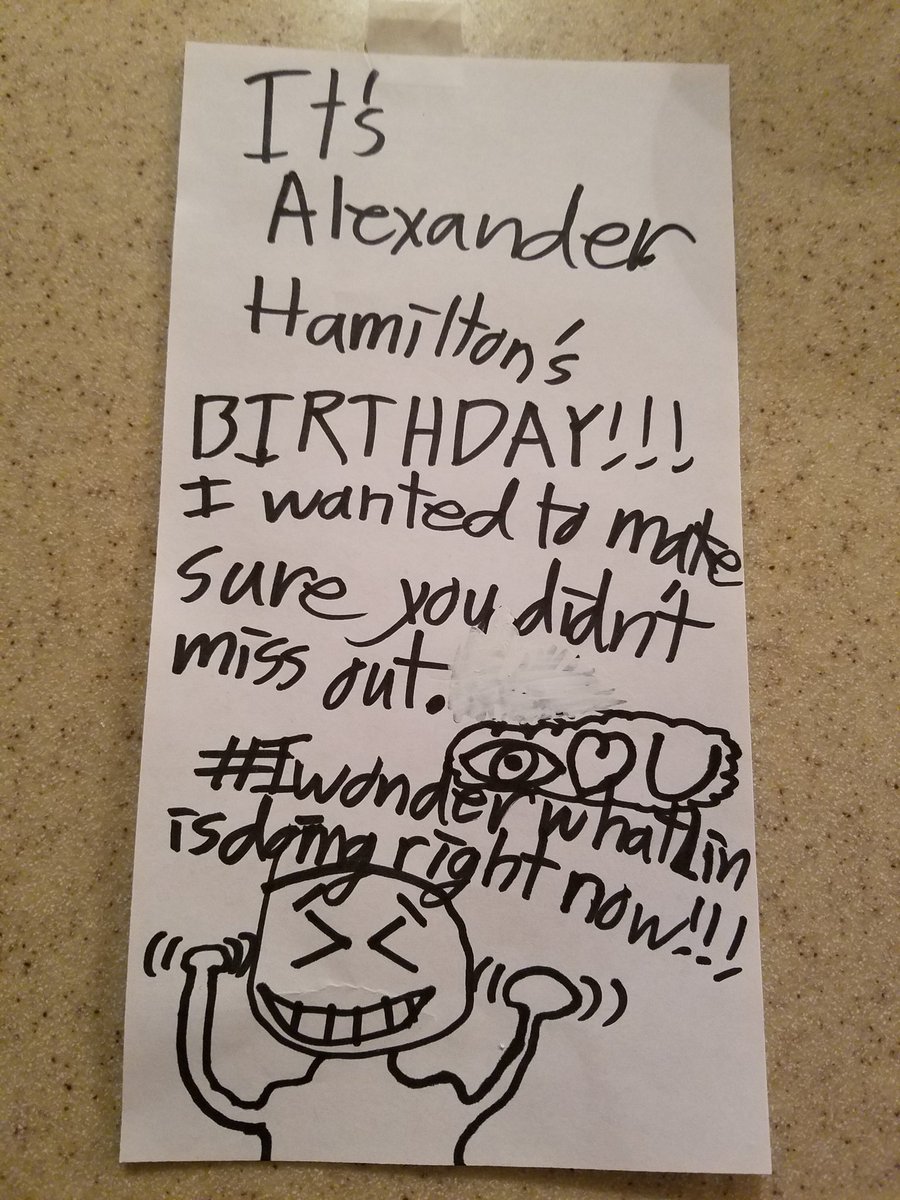 It's
Alexander
Hamilton's
BIRTHDAY!!!
I wanted to make
sure you didn't
miss out.
U
#Iwonder what Lin
isdoing right now!!!